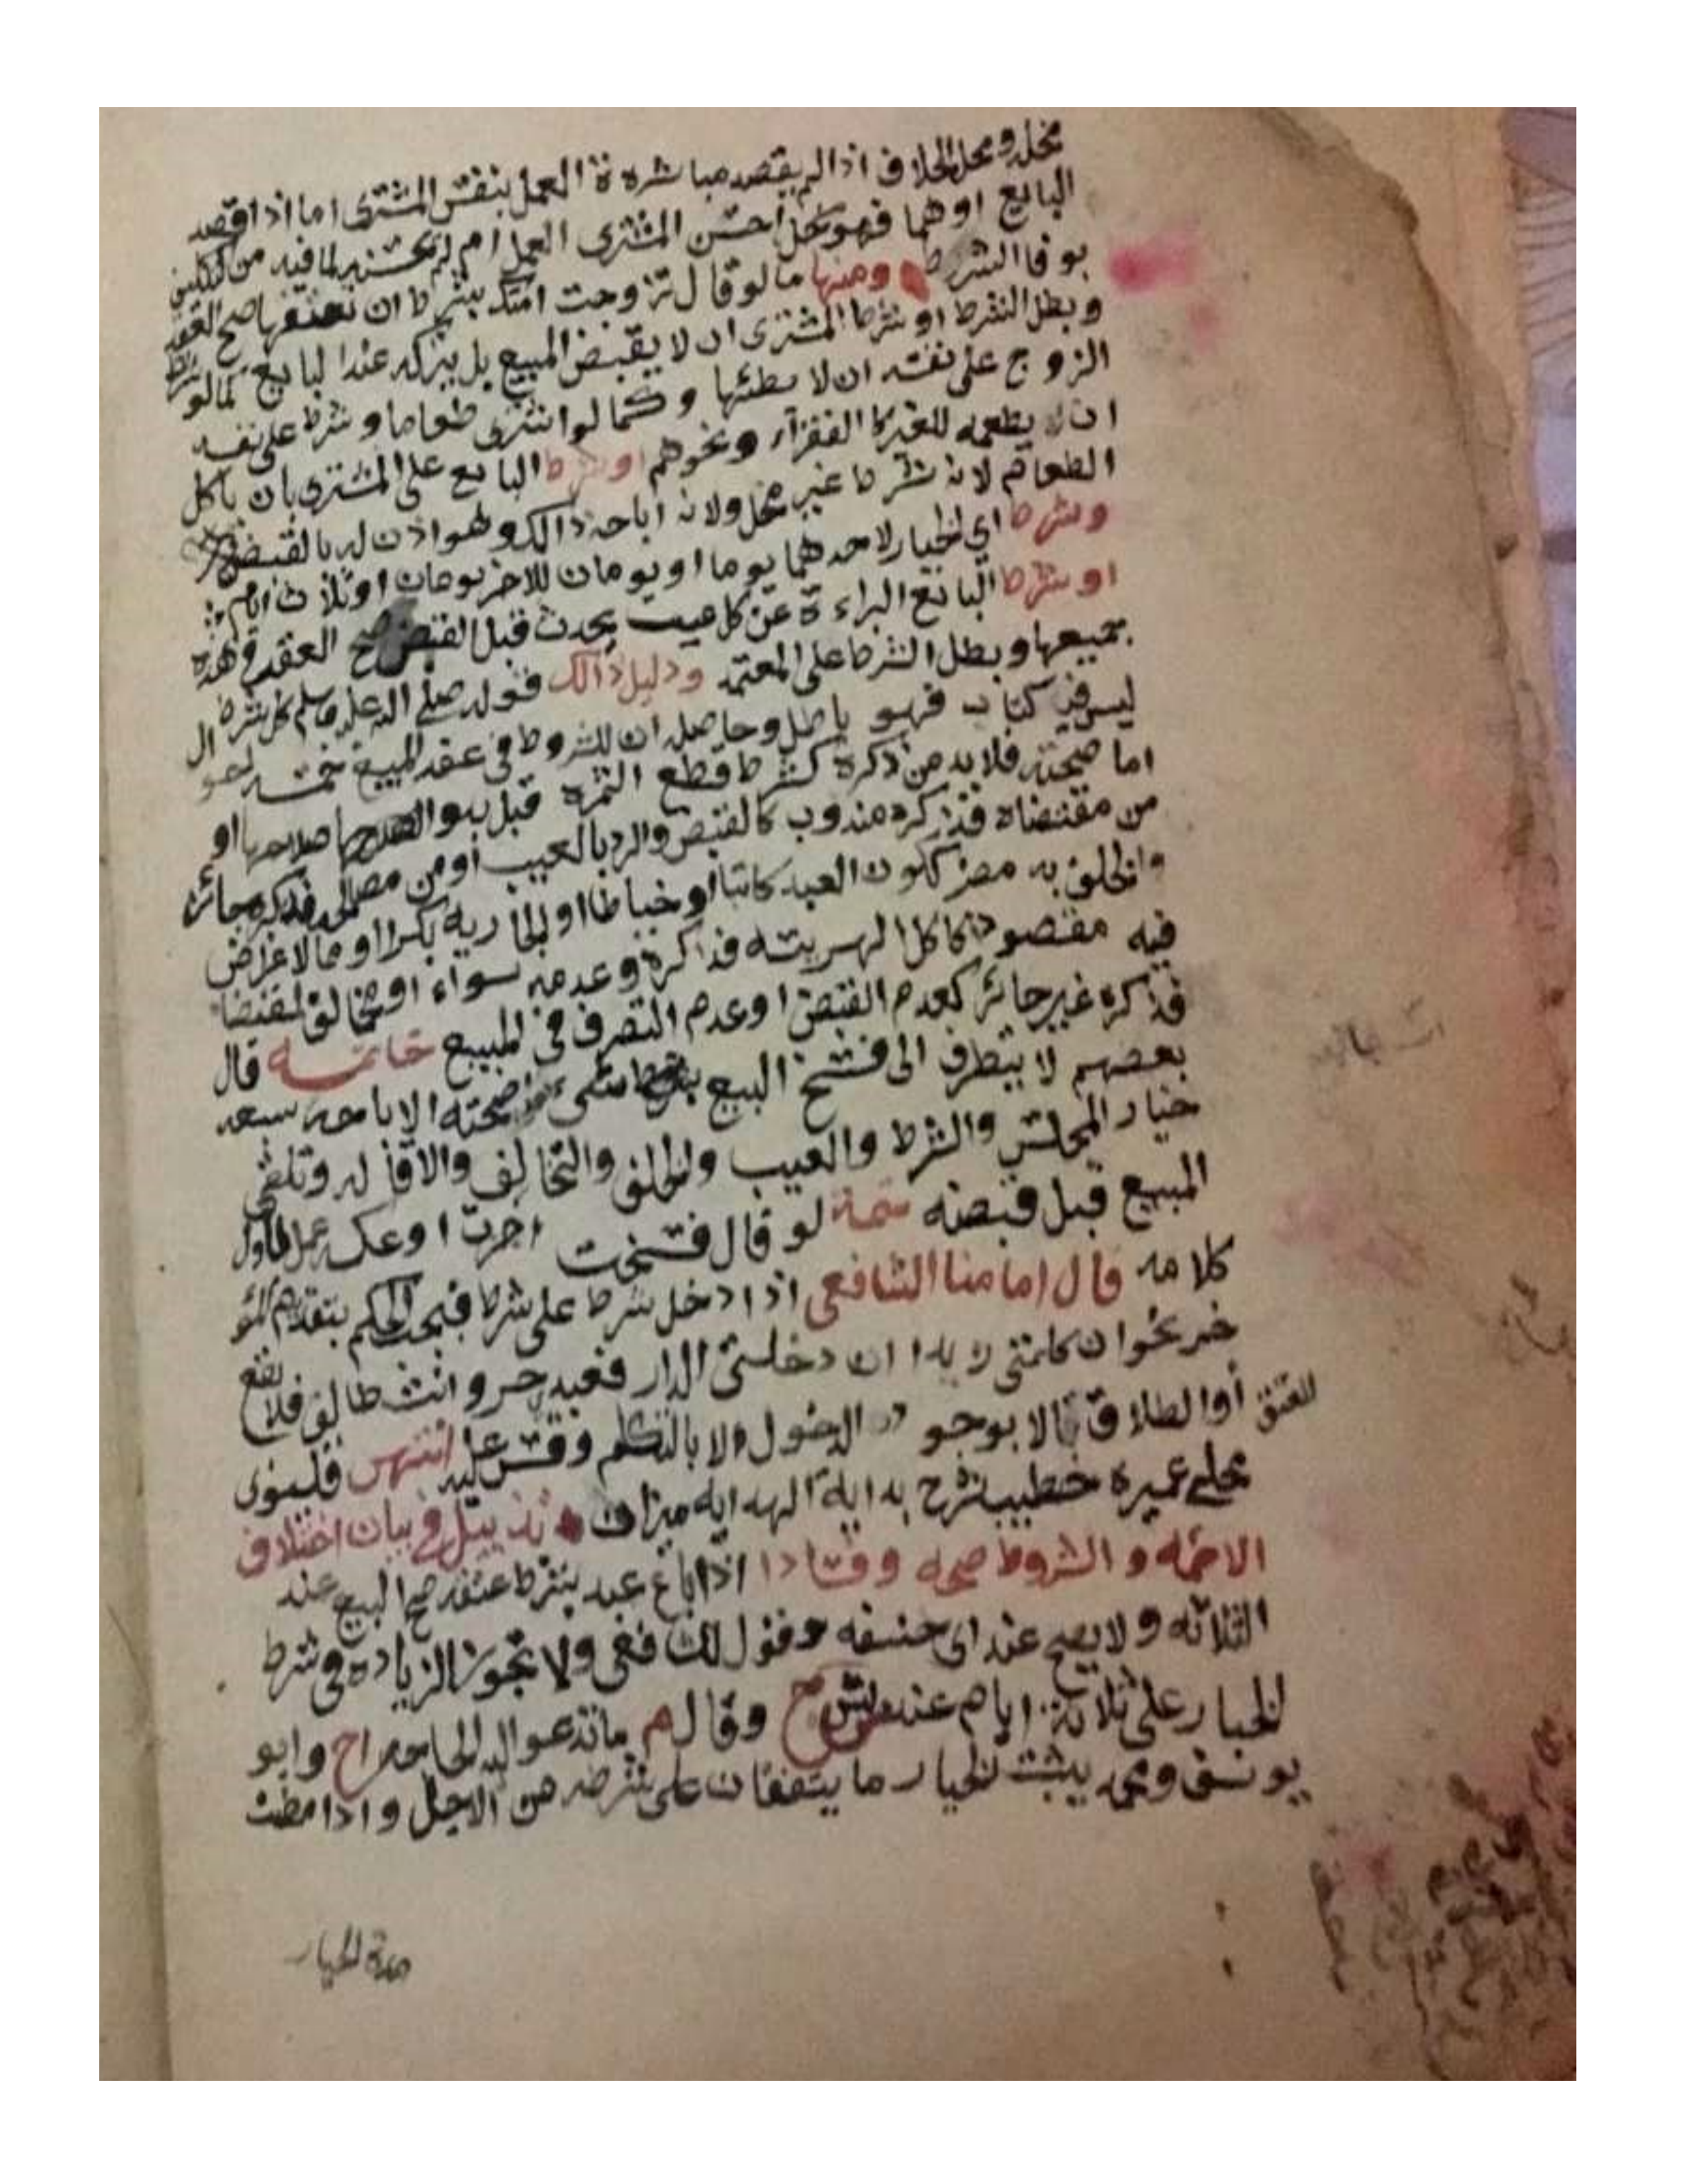 محله ومحل الخلاف اذا لم يقصد مباشرة العمل بنفس المشترى اما اذا قصد
البايع اوهما فهو كل احسن المشترى العمل ام لم يحسنه لما فيه من
بوفا الشرط ومنها ما لو قال تزوجت امتك بشرط ان تعتقها صح العقد
وبطل الشرط او شرط المشترى ان لا يقبض المبيع بل يتركه عند البايع كما لو شرط
الزوج على نفسه ان لا يطئها وكما لو اشترى طعاما وشرط على نفسه
ان لا يطعمه للغير كا الفقرآء ونحوهم او شرط البايع على المشترى بان ياكل
الطعام لانه شرط غير مخل ولانه اباحه ذالك وهو اذن له بالقبض
وشرط اي الخيار لاحدهما يوما او يومان للاخر يومان او ثلاث ايام
او شرط البايع البراءة عن كل عيب يحدث قبل القبض صح العقد في هذه
جميعها وبطل الشرط على المعتمد ودليل ذالك قوله صلى الله عليه وسلم كل شرط
ليس في كتاب فهو باطل وحاصله ان للشروط في عقد المبيع خمسة احوال
اما صحته فلا بد من ذكره كشرط قطع الثمره قبل بدو صلاحها او
من مقتضاه فذكره مندوب كالقبض والرد بالعيب او من مصالحه فذكره جائز
والخلف به مضر ككون العبد كاتبا او خياطا او الجاريه بكرا او ما لا غراض
فيه مقصود كاكل الهريسه فذاكره وعدمه سواء او مخالف لمقتضا
فذاكره غير جائز كعدم القبض او عدم التصرف في المبيع خاتمه قال
بعضهم لا يتطرق الى فسخ البيع صحته الا باحد سبعه
خيار المجلس والشرط والعيب والخلف والتخالف والاقاله وتلف
المبيع قبل قبضه تتمة لو قال فسخت اجزت او عكسه عمل باول
كلامه قال امامنا الشافعى اذا دخل شرط على شرط فيحث الحكم بتقديم المؤ
خر نحو ان كلمتى زيدا ان دخلتى الدار فعبد حر وانت طالق فلا يقع
للعتق أوا لطلاق الا بوجود الدخول الا بالتكلم وقس عليه انتهى قليوبى
محلي عميره خطيب شرح بداية الهدايه ميزان تذييل في بيان اختلاف
الائمه و الشروط صحه وفسادا اذا باع عبد بشرط عتقه صح البيع عند
الثلاثه ولا يصح عند ابى حنيفه وقول للشافعى ولا تجوز الزياده في شرط
الخيار على ثلاثة ايام عند ش ح وقال م ما تدعوا اليه الحاجه اح وابو
يوسف ومحمد يثبت الخيار ما يتفقان على شرطه من الاجل واذا مضت
مدة الخيار